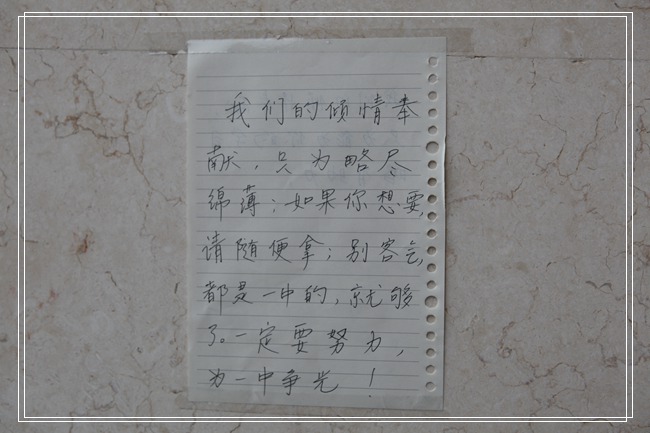 我们的倾情奉
献，只为略尽
绵薄；如果你想要，
请随便拿；别客气，
都是一中的，就够
了。一定要努力，
为一中争光！